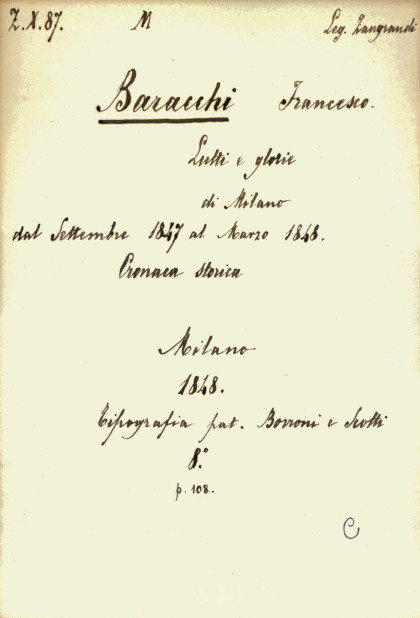 Z.X.87. M Leg. Zangrandi
Baracchi Francesco.
Lutti e glorie
di Milano
dal Settembre 1847 al Marzo 1848.
Cronaca storica
Milano
1848.
Tipografia pat. Borroni e Scotti
8.°
p. 108.
C